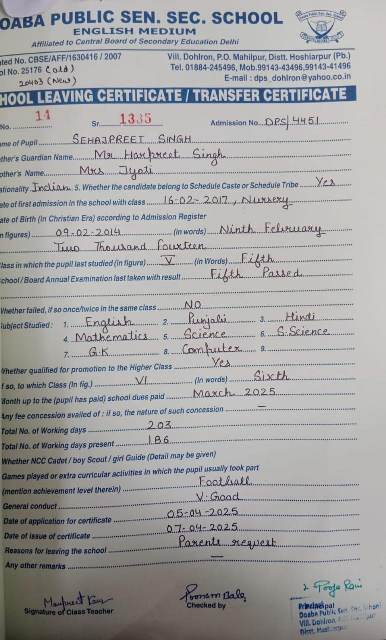 OABA PUBLIC SEN. SEC. SCHOOL
ENGLISH MEDIUM
Affiliated to Central Board of Secondary Education Delhi
ated No. CBSE/AFF/1630416 / 2007 Vill. Dohlron, P.O. Mahilpur, Distt. Hoshiarpur (Pb.)
ol No. 25176 (old) Tel. 01884-245496, Mob.99143-43496,99143-41496
20403 (New) E-mail : dps_dohlron@yahoo.co.in
HOOL LEAVING CERTIFICATE / TRANSFER CERTIFICATE
No. 14 Sr. 1335 Admission No. DPS/4451
me of Pupil SEHAJPREET SINGH
ther's Guardian Name Mr Harpreet Singh
other's Name Mrs Jyoti
ationality Indian 5. Whether the candidate belong to Schedule Caste or Schedule Tribe Yes
ate of first admission in the school with class 16-02-2017, Nursery
ate of Birth (in Christian Era) according to Admission Register
n figures) 09-02-2014 (in words) Ninth February
Two Thousand Fourteen
Class in which the pupil last studied (in figure) V (in Words) Fifth
School / Board Annual Examination last taken with result Fifth Passed
Whether failed, if so once/twice in the same class NO
Subject Studied : 1. English 2. Punjabi 3. Hindi
4. Mathematics 5. Science 6. S.Science
7. G.K 8. Computer 9.
Whether qualified for promotion to the Higher Class Yes
f so, to which Class (in fig.) VI (in words) Sixth
Month up to the (pupil has paid) school dues paid March 2025
Any fee concession availed of : if so, the nature of such concession —
Total No. of Working days 203
Total No. of Working days present 186
Whether NCC Cadet / boy Scout / girl Guide (Detail may be given)
Games played or extra curricular activities in which the pupil usually took part
(mention achievement level therein) Football
General conduct V. Good
Date of application for certificate 05-04-2025
Date of issue of certificate 07-04-2025
Reasons for leaving the school Parents request
Any other remarks —
Manpreet Kaur Poonam Bala Pooja Rani
Signature of Class Teacher Checked by Principal
Doaba Public Sen. Sec. School
Vill. Dohlron,
Distt. Hoshiarpur